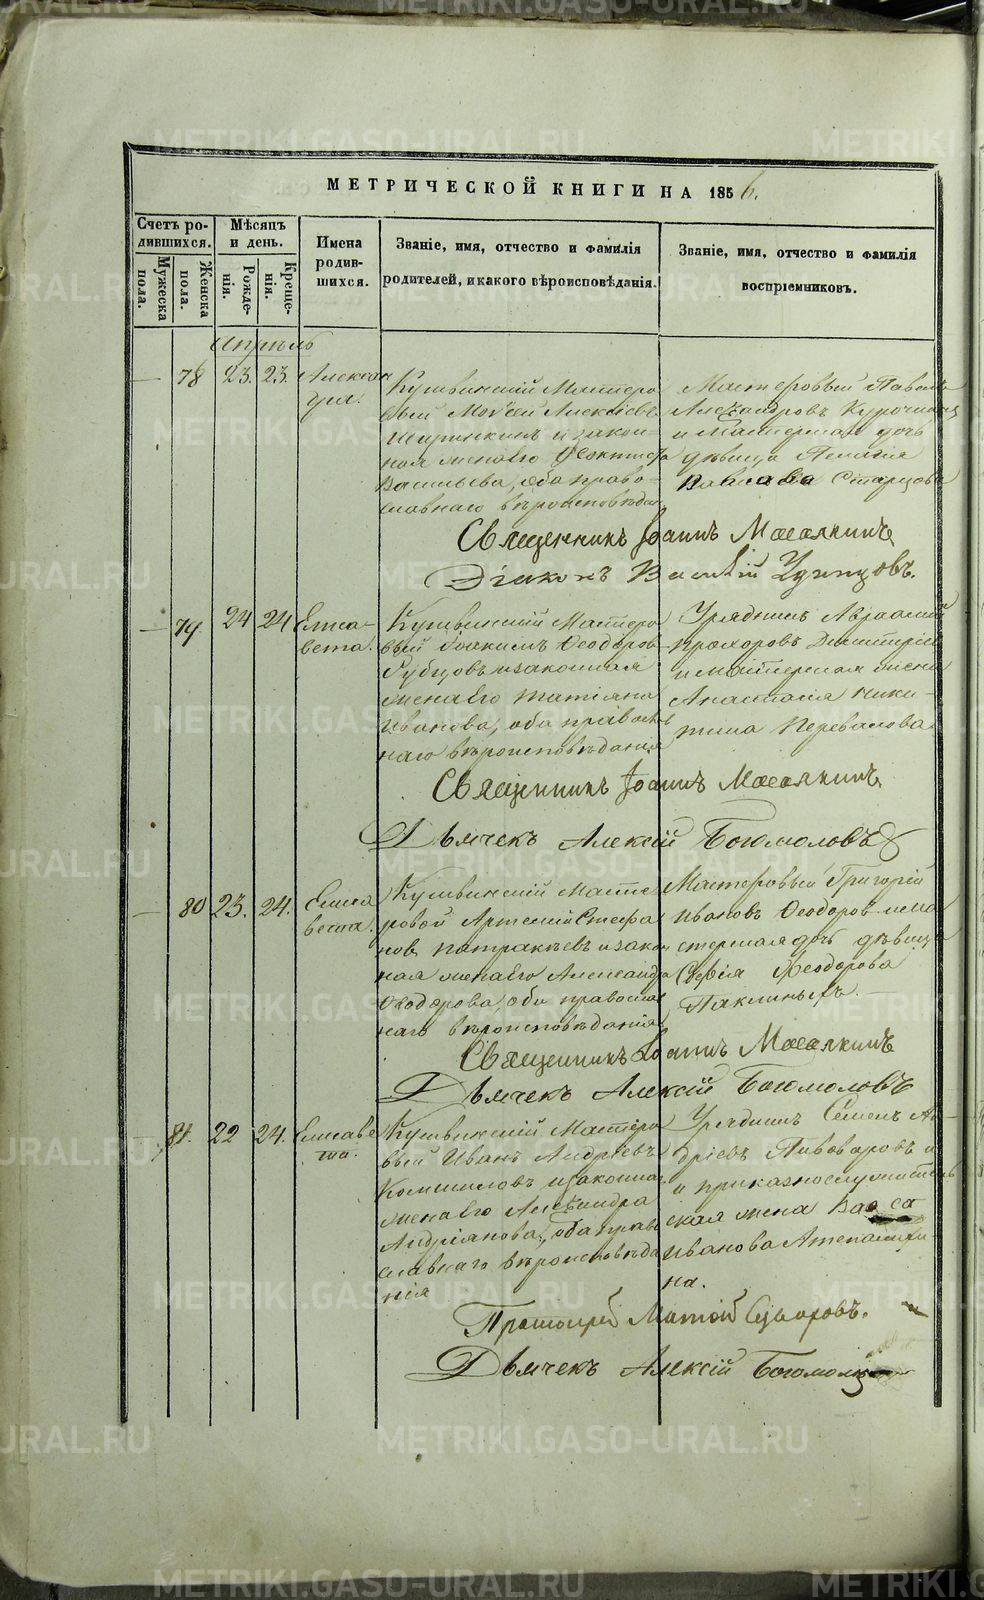 МЕТРИЧЕСКОЙ КНИГИ НА 1856.
Счетъ родившихся.
Мужеска пола.
Женска пола.
Мѣсяцъ и день.
Рожденія.
Крещенія.
Имена родив-
шихся.
Званіе, имя, отчество и фамилія
родителей, и какого вѣроисповѣданія.
Званіе, имя, отчество и фамилія
воспріемниковъ.
Апрѣль
— 78 23. 23. Алексан
Кушвинскій Мастеро
вый Алексѣевъ
и закон
ная жена его
Васильева, оба право
славнаго вѣроисповѣдан
Мастеровый Павелъ
Александровъ
и Мастерская дочь
дѣвица Пелагія
Старцова
Священникъ Іоаннъ
Діаконъ Василій
— 79 24 24 Елиса-
вета.
Кушвинскій Мастеро
вый Іоакимъ Ѳеодоров
Рубцовъ и законная
жена его Татіана
Иванова, оба правосл
наго вѣроисповѣданія
Урядникъ
Прохоровъ
и мастерская жена
Анастасія Ники-
тина Перевалова
Священникъ Іоаннъ
Дьячекъ Алексій Богомоловъ
— 80 23. 24. Елиса
вета.
Кушвинскій Масте
ровой Артемій Стефа
новъ Патракѣевъ и закон
ная жена его Александра
Ѳеодорова, оба правосла
наго вѣроисповѣданія
Мастеровый Григорій
Ивановъ Ѳеодоров и ма
стерская дочь дѣвица
Софія Ѳеодорова
Паклиныхъ.—
Священникъ Іоаннъ
Дьячекъ Алексій Богомоловъ
81. 22 24. Елисаве
та.
Кушвинскій Мастеро
вый Иванъ Андреевъ
и законная
жена его Александра
Андріянова, оба прав
славнаго вѣроисповѣда
нія
Урядникъ Семенъ Ан-
дріевъ Пивоваровъ и
и приказнослужитель
ская жена
Иванова
на.
Протоіерей
Дьячекъ Алексій
METRIKI.GASO-URAL.RU